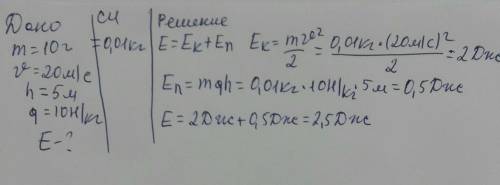 Дано
m=10г
υ=20м/с
h=5м
g=10Н/кг
E-?
СИ
=0,01кг
Решение
E=Eк+Eп Eк=mυ²/2=0,01кг·(20м/с)²/2=2Дж
Eп=mgh=0,01кг·10Н/кг·5м=0,5Дж
E=2Дж+0,5Дж=2,5Дж